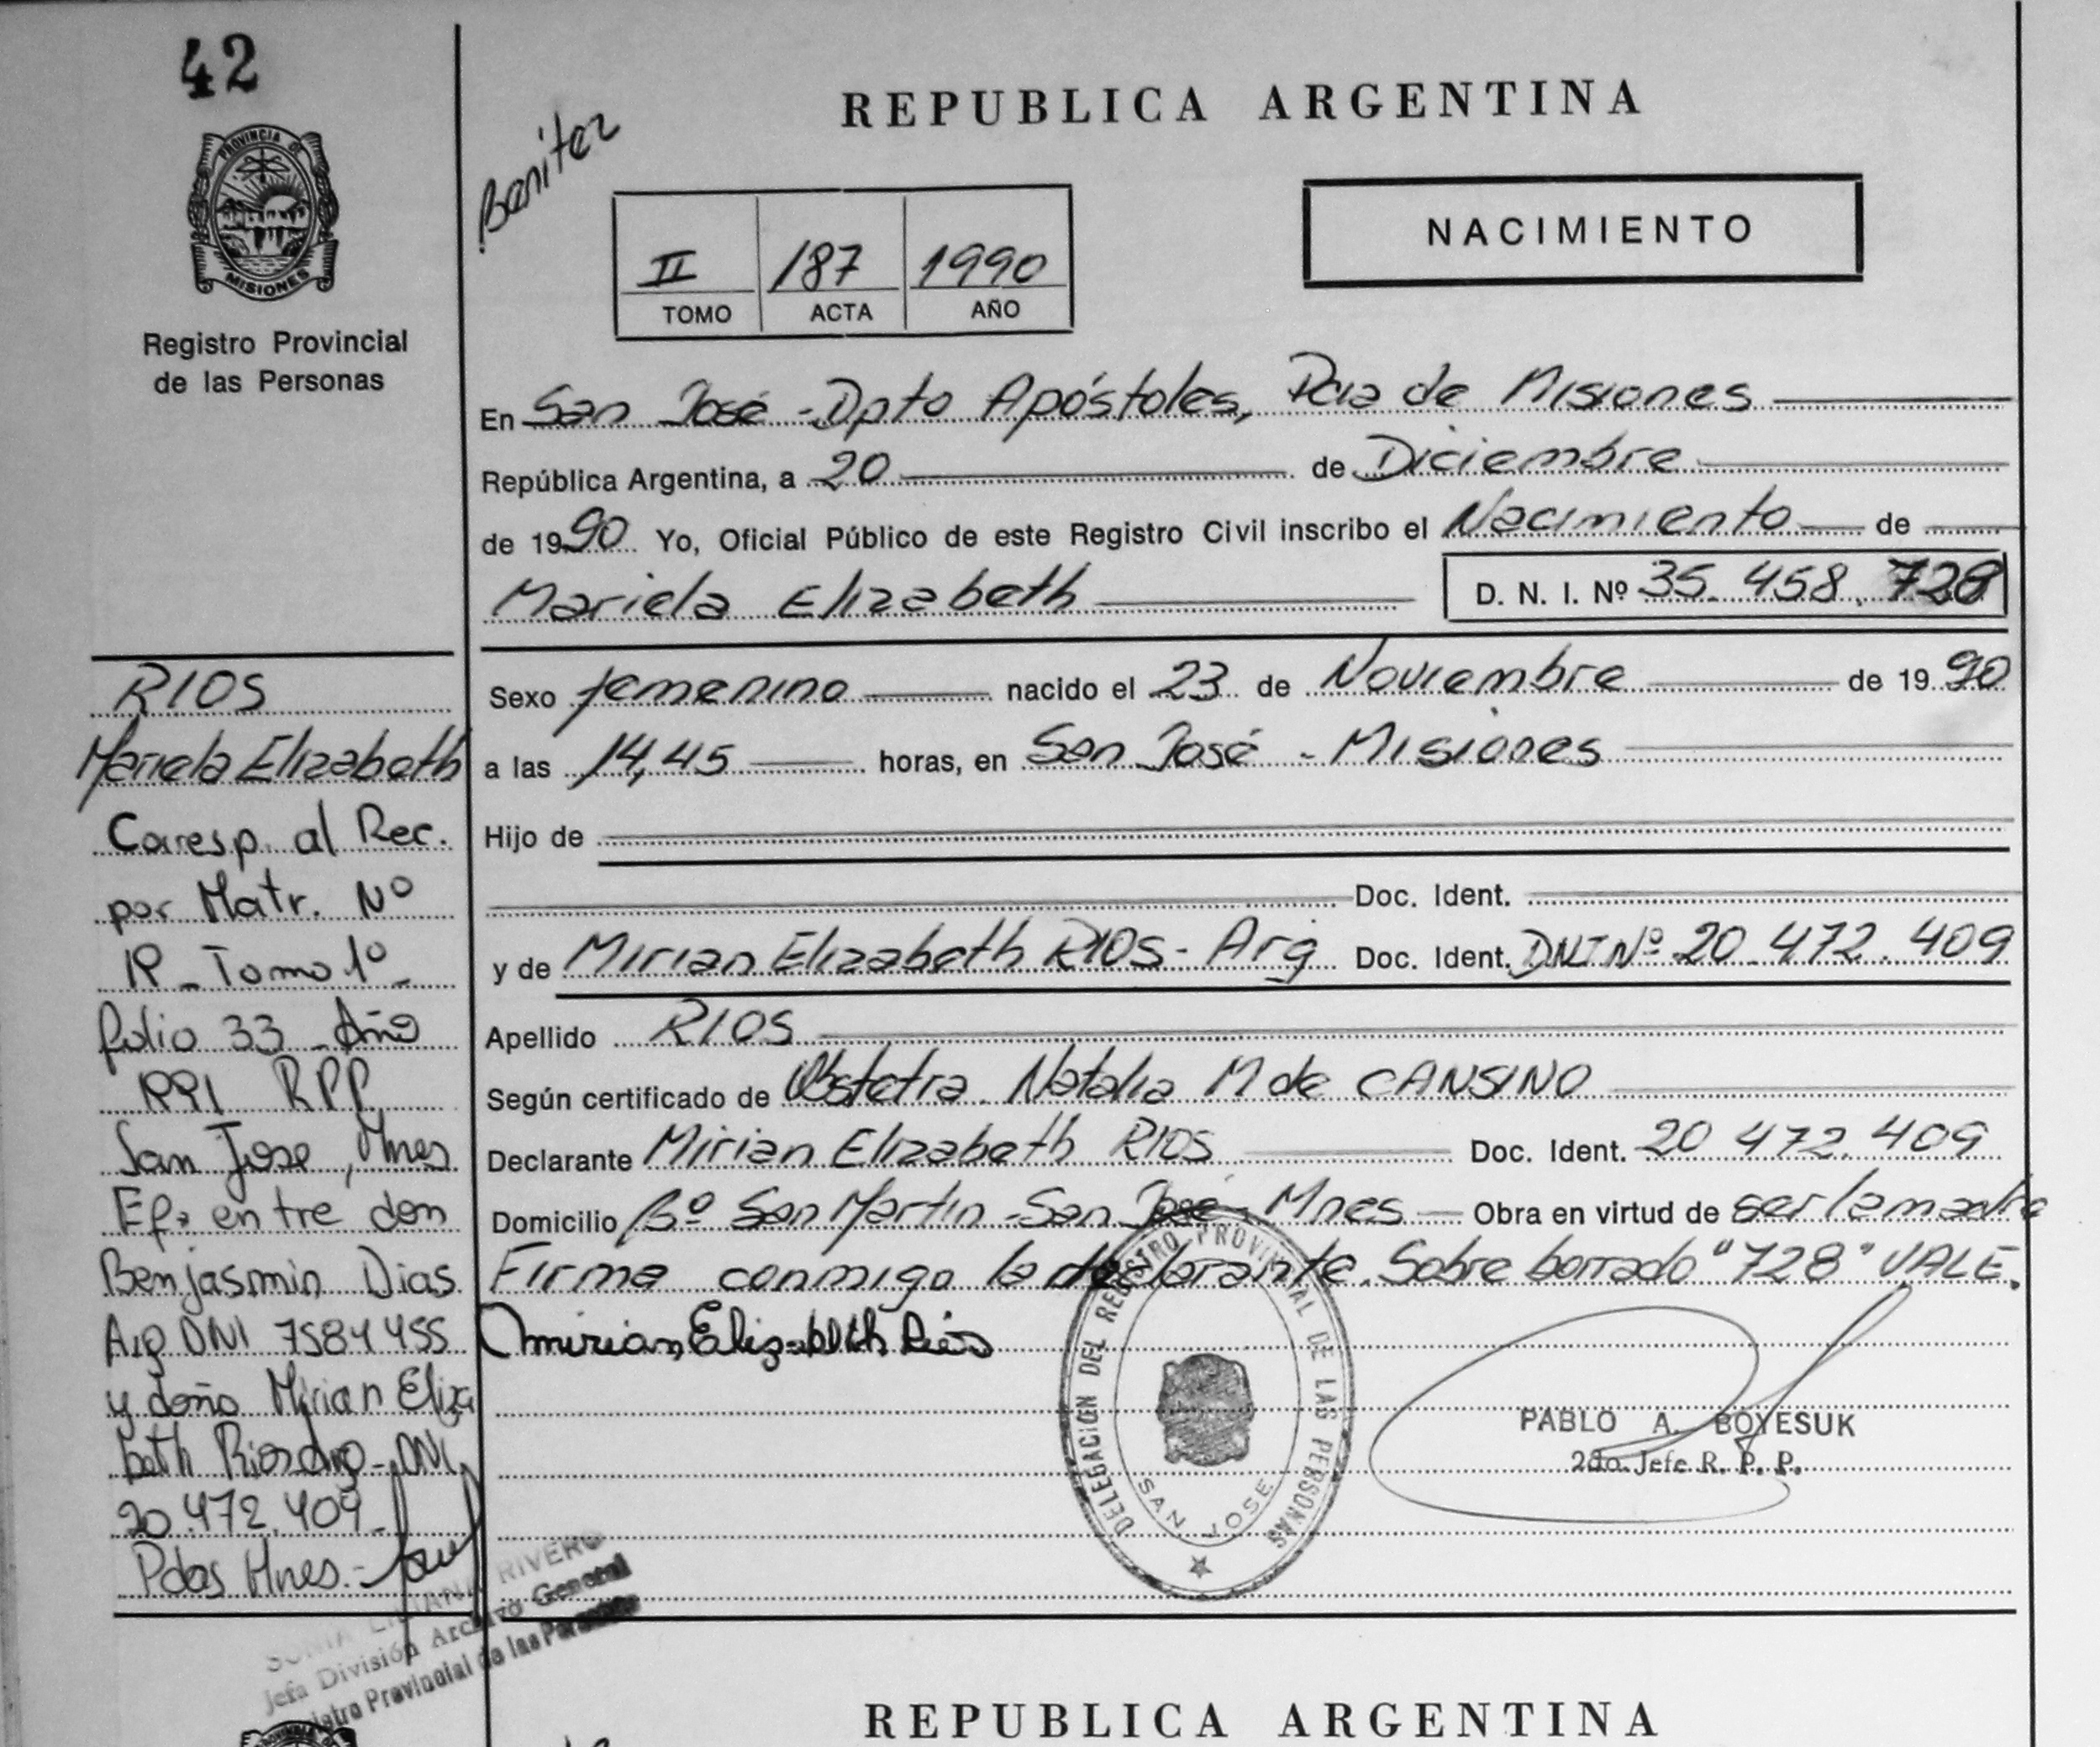 42
PROVINCIA DE
MISIONES
Registro Provincial
de las Personas
Benitez
REPUBLICA ARGENTINA
NACIMIENTO
II 187 1990
TOMO ACTA AÑO
En San José - Dpto Apóstoles, Pcia de Misiones
República Argentina, a 20 de Diciembre
de 1990 Yo, Oficial Público de este Registro Civil inscribo el Nacimiento de
Mariela Elizabeth D. N. I. Nº 35.458.728
Sexo femenino nacido el 23 de Noviembre de 1990
a las 14,45 horas, en San José - Misiones
Hijo de
Doc. Ident.
y de Mirian Elizabeth RIOS - Arg Doc. Ident. DNI Nº 20.472.409
Apellido RIOS
Según certificado de Obstetra Natalia M de CANSINO
Declarante Mirian Elizabeth RIOS Doc. Ident. 20 472.409
Domicilio Bº San Martin - San José - Mnes - Obra en virtud de ser la madre
Firma conmigo la declarante. Sobre borrado "728" VALE.
Mirian Elizabeth Rios
RIOS
Mariela Elizabeth
Corresp. al Rec.
por Matr. Nº
19 - Tomo 1º -
folio 33 - Año
1991 RPP
San Jose, Mnes
Ef. entre don
Benjasmin Dias
Arg DNI 7584455
y doña Mirian Eliza
beth Rios - DNI
20.472.409 -
Pdas Mnes. -
DELEGACION DEL REGISTRO PROVINCIAL DE LAS PERSONAS
SAN JOSE
PABLO A. BOYESUK
2do. Jefe R. P. P.
RIVERO
Jefa División Archivo General
Provincial de las Personas
REPUBLICA ARGENTINA